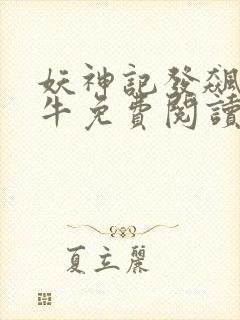 妖神記發飆
牛免費閱讀
夏立麗